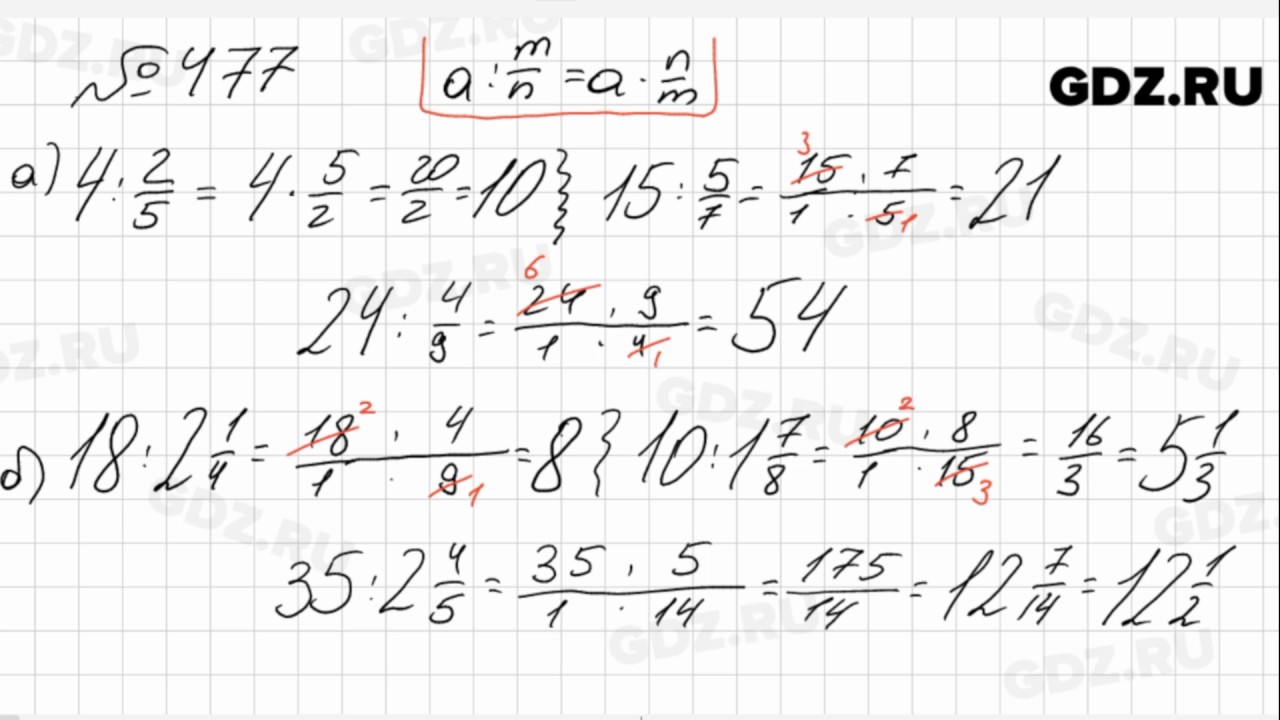 № 477 a : m/n = a · n/m GDZ.RU
а) 4 : 2/5 = 4 · 5/2 = 20/2 = 10 } 15 : 5/7 = (15 3 · 7)/(1 · 5 1) = 21
24 : 4/9 = (24 6 · 9)/(1 · 4 1) = 54
б) 18 : 2 1/4 = (18 2 · 4)/(1 · 9 1) = 8 } 10 : 1 7/8 = (10 2 · 8)/(1 · 15 3) = 16/3 = 5 1/3
35 : 2 4/5 = (35 · 5)/(1 · 14) = 175/14 = 12 7/14 = 12 1/2